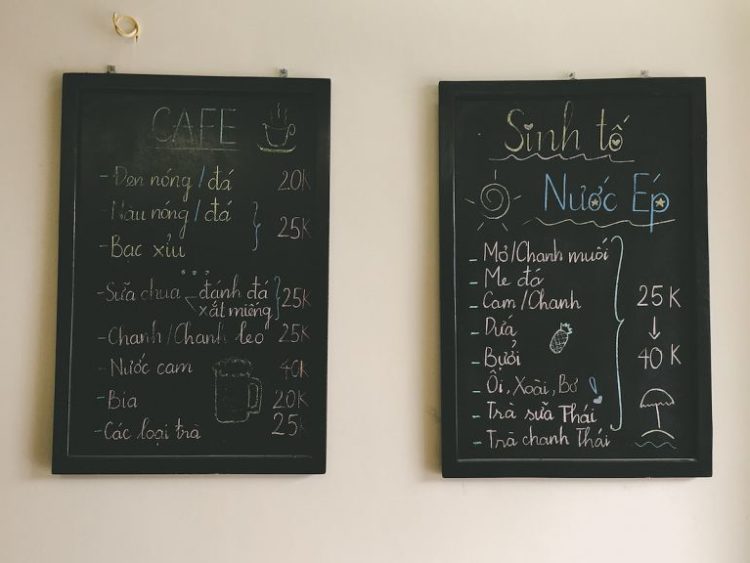 CAFE
- Đen nóng / đá 20K
- Nâu nóng / đá
25K
- Bạc xỉu
- Sữa chua đánh đá
xắt miếng 25K
- Chanh / Chanh leo 25K
- Nước cam 40K
- Bia 20K
- Các loại trà 25
Sinh tố
Nước Ép
- Mơ/Chanh muối
- Me đá
- Cam/Chanh 25K
- Dứa
- Bưởi 40K
- Ổi, Xoài, Bơ
- Trà sữa Thái
- Trà chanh Thái